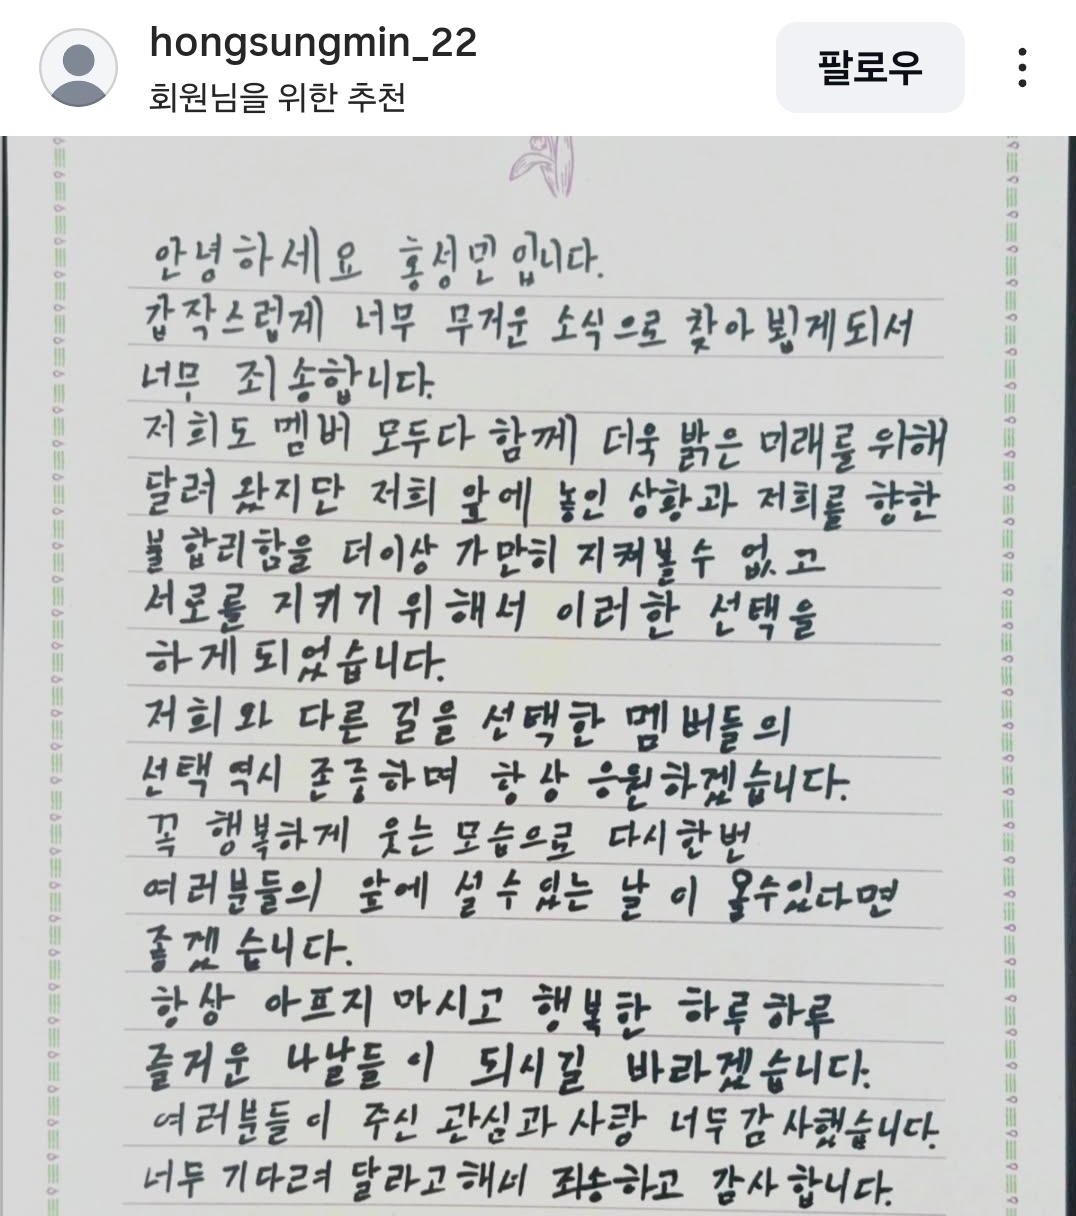 hongsungmin_22
회원님을 위한 추천
팔로우
안녕하세요 홍성민 입니다.
갑작스럽게 너무 무거운 소식으로 찾아뵙게되서
너무 죄송합니다.
저희도 멤버 모두다 함께 더욱 밝은 미래를 위해
달려 왔지만 저희 앞에 놓인 상황과 저희를 향한
불합리함을 더이상 가만히 지켜볼 수 없고
서로를 지키기 위해서 이러한 선택을
하게 되었습니다.
저희와 다른 길을 선택한 멤버들의
선택 역시 존중하며 항상 응원하겠습니다.
꼭 행복하게 웃는 모습으로 다시한번
여러분들의 앞에 설 수 있는 날 이 올수있다면
좋겠습니다.
항상 아프지 마시고 행복한 하루하루
즐거운 나날들 이 되시길 바라겠습니다.
여러분들이 주신 관심과 사랑 너무 감사했습니다.
너무 기다려 달라고해서 죄송하고 감사합니다.